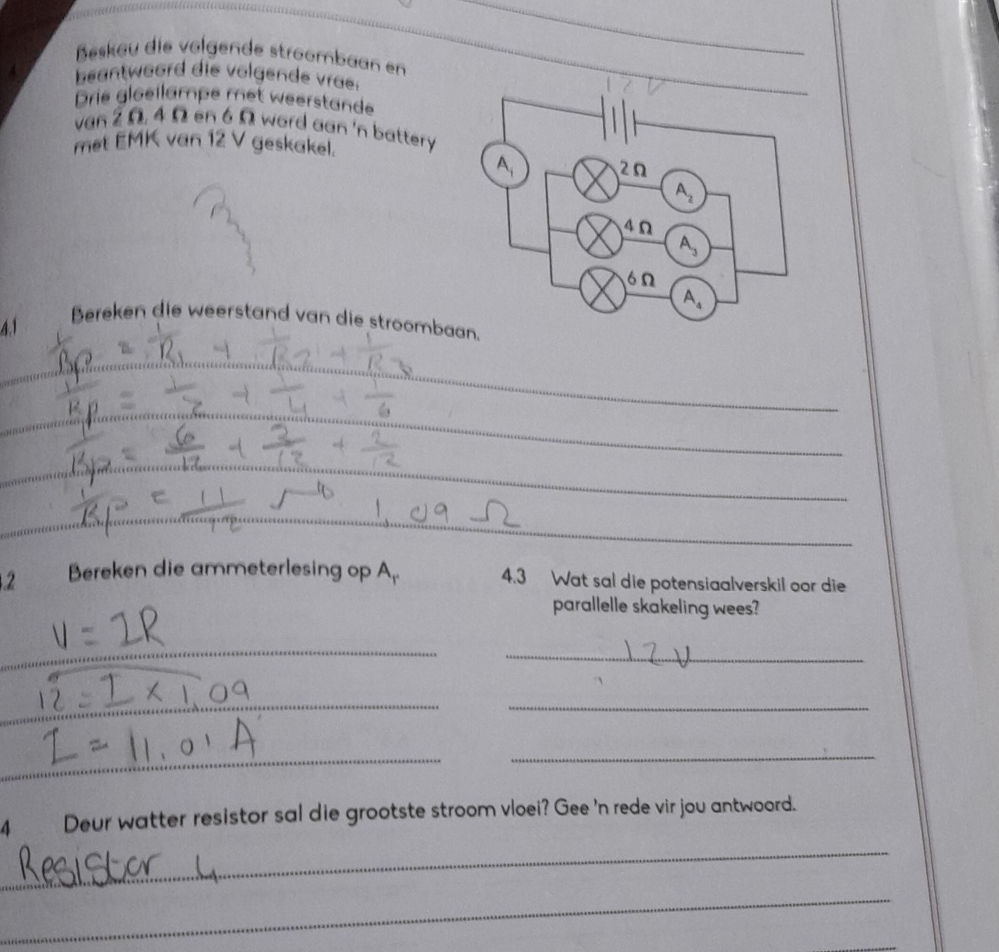 Beskou die volgende stroombaan en
beantwoord die volgende vrae.
Drie gloeilampe met weerstande
van 2 Ω, 4 Ω en 6 Ω word aan 'n battery
met EMK van 12 V geskakel.
12 V
A₁
2 Ω
A₂
4 Ω
A₃
6 Ω
A₄
4.1 Bereken die weerstand van die stroombaan.
1/Rp = 1/R₁ + 1/R₂ + 1/R₃
1/Rp = 1/2 + 1/4 + 1/6
1/Rp = 6/12 + 3/12 + 2/12
1/Rp = 11/12 1,09 Ω
.2 Bereken die ammeterlesing op A₁.
V = IR
12 = I × 1,09
I = 11,01 A
4.3 Wat sal die potensiaalverskil oor die
parallelle skakeling wees?
12 V
4 Deur watter resistor sal die grootste stroom vloei? Gee 'n rede vir jou antwoord.
Resistor 4